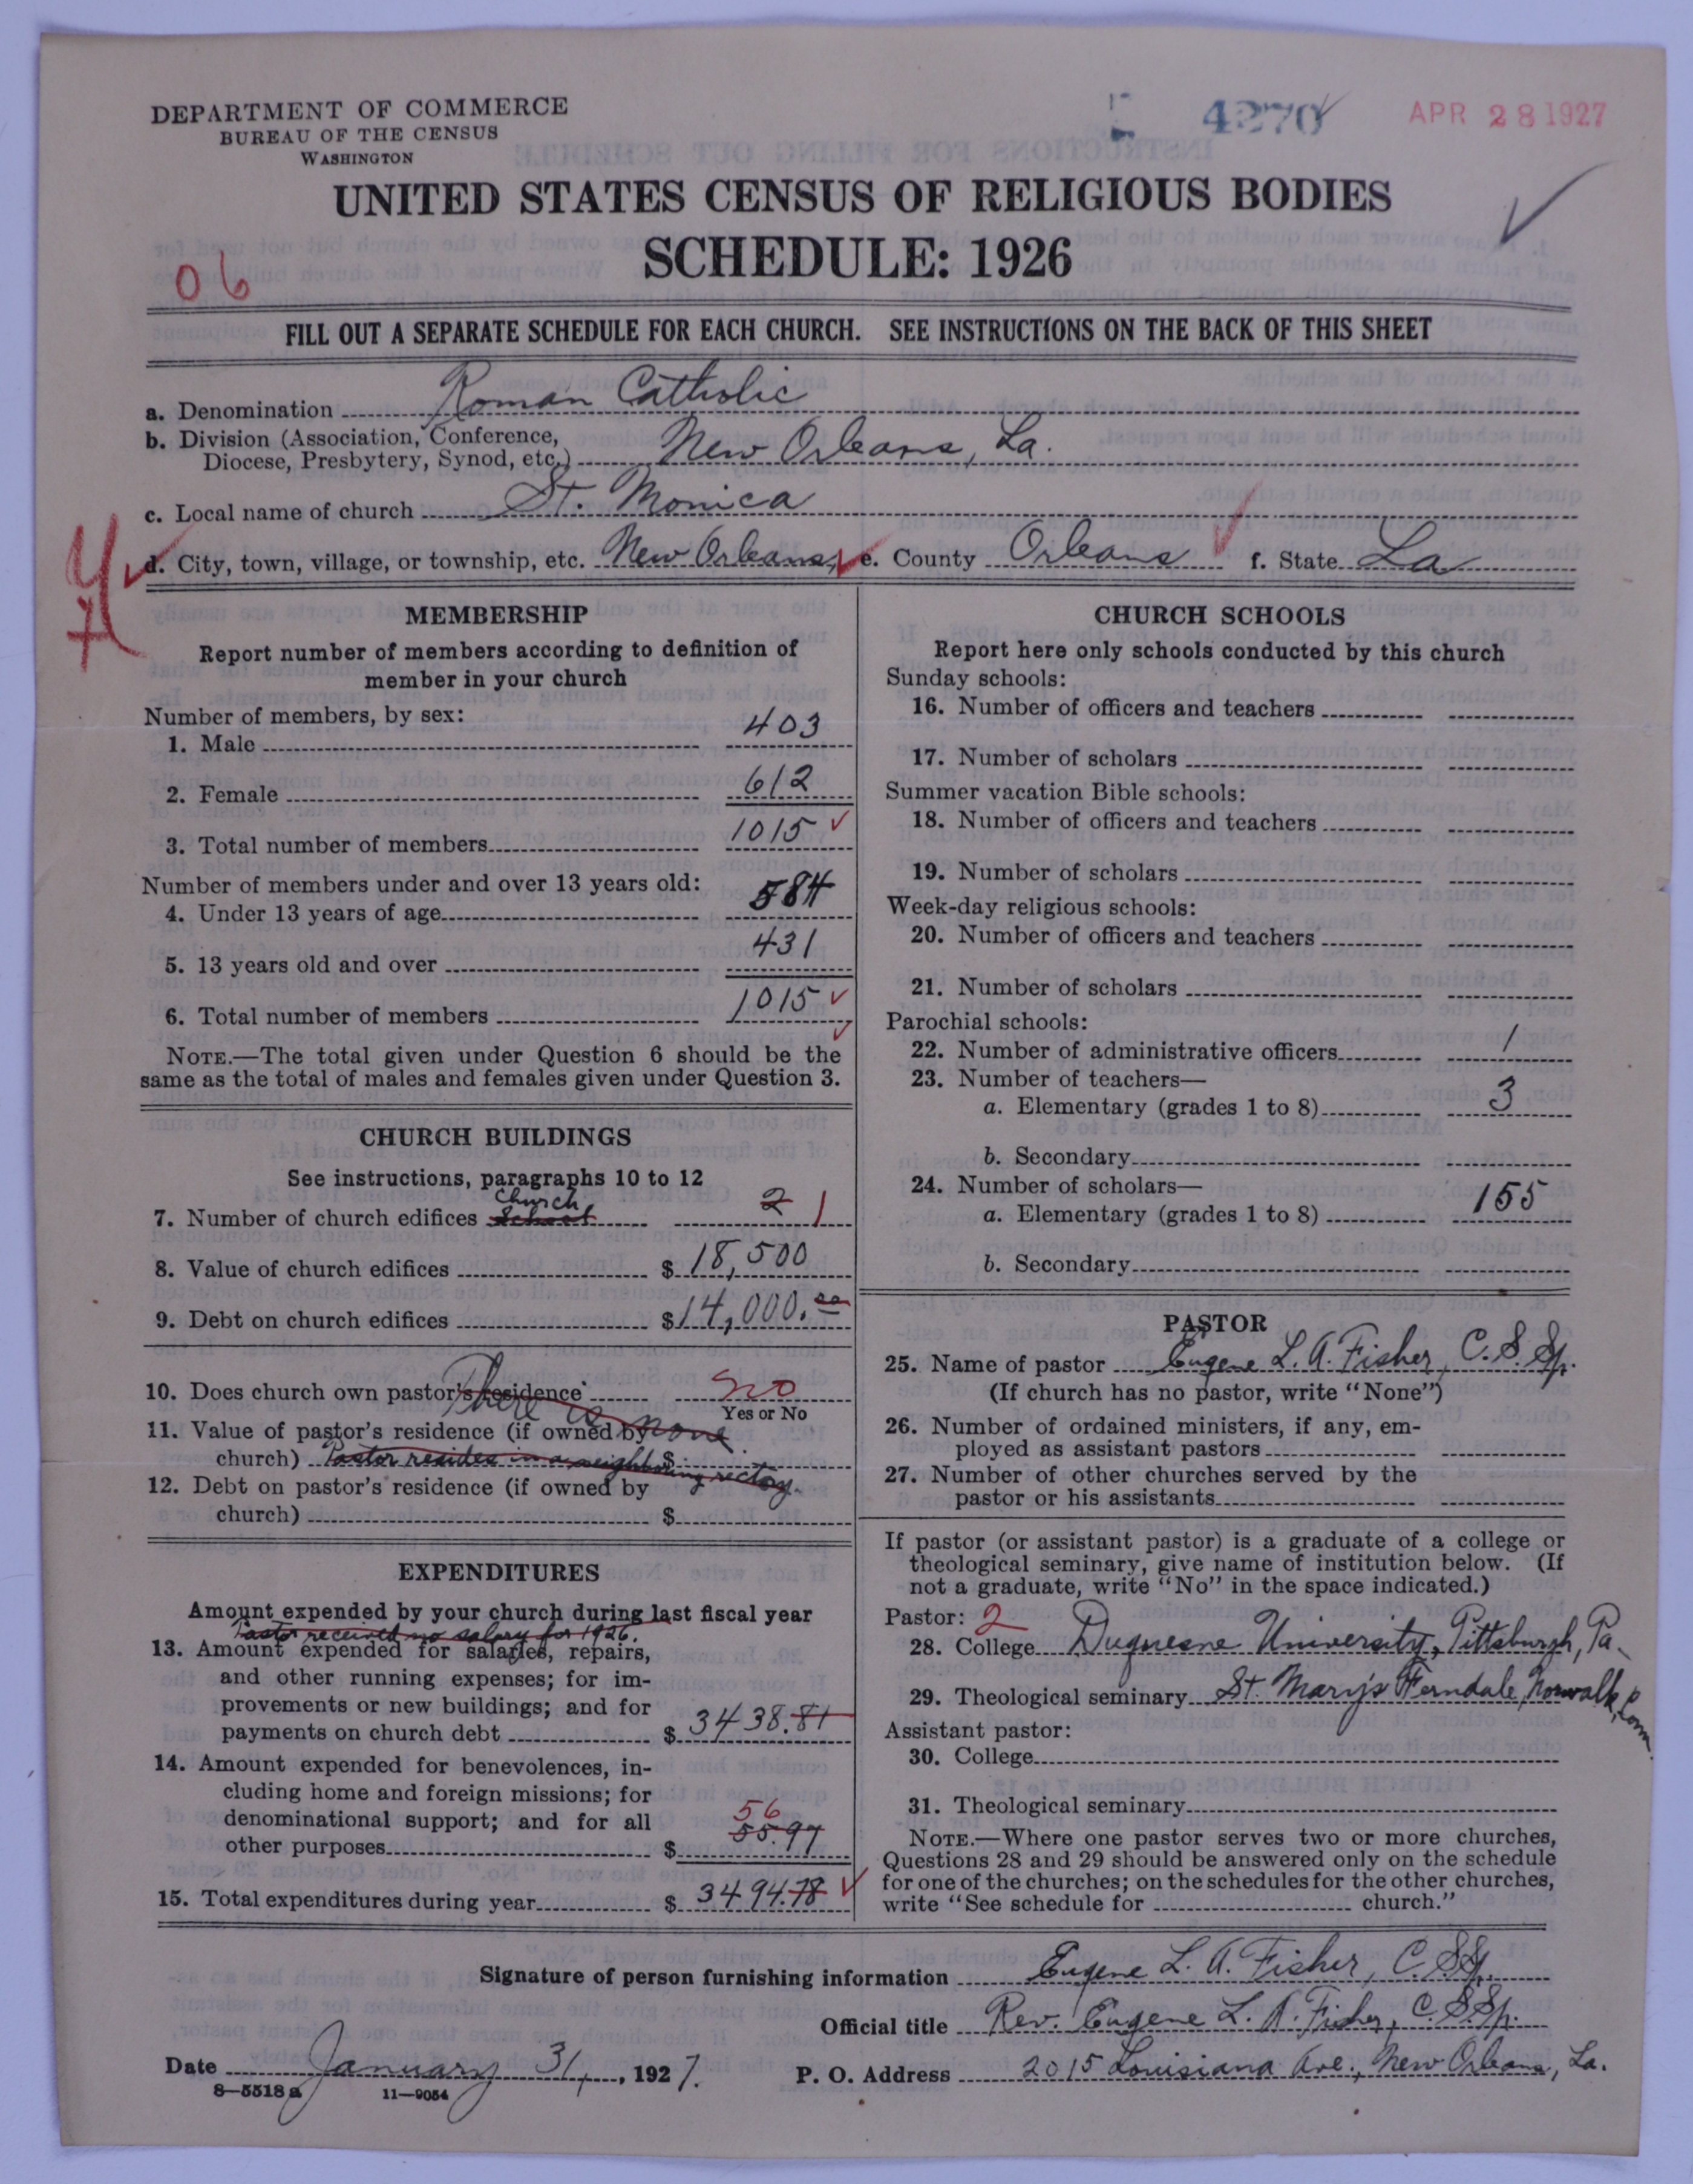 DEPARTMENT OF COMMERCE
BUREAU OF THE CENSUS
WASHINGTON
4270
APR 28 1927
UNITED STATES CENSUS OF RELIGIOUS BODIES
SCHEDULE: 1926
06
FILL OUT A SEPARATE SCHEDULE FOR EACH CHURCH. SEE INSTRUCTIONS ON THE BACK OF THIS SHEET
a. Denomination Roman Catholic
b. Division (Association, Conference,
Diocese, Presbytery, Synod, etc.) New Orleans, La.
c. Local name of church St. Monica
d. City, town, village, or township, etc. New Orleans, e. County Orleans f. State La
MEMBERSHIP
Report number of members according to definition of
member in your church
Number of members, by sex:
1. Male 403
2. Female 612
3. Total number of members 1015
Number of members under and over 13 years old:
4. Under 13 years of age 584
5. 13 years old and over 431
6. Total number of members 1015
NOTE.—The total given under Question 6 should be the
same as the total of males and females given under Question 3.
CHURCH BUILDINGS
See instructions, paragraphs 10 to 12
Church
7. Number of church edifices School 2 1
8. Value of church edifices $ 18,500
9. Debt on church edifices $ 14,000.00
10. Does church own pastor's residence no
Yes or No
There is none
11. Value of pastor's residence (if owned by
church) Pastor resides in a neighboring rectory. $
12. Debt on pastor's residence (if owned by
church) $
EXPENDITURES
Amount expended by your church during last fiscal year
Pastor received no salary for 1926.
13. Amount expended for salaries, repairs,
and other running expenses; for im-
provements or new buildings; and for
payments on church debt $ 3438.81
14. Amount expended for benevolences, in-
cluding home and foreign missions; for
denominational support; and for all 56
other purposes $ 55.97
15. Total expenditures during year $ 3494.78
CHURCH SCHOOLS
Report here only schools conducted by this church
Sunday schools:
16. Number of officers and teachers
17. Number of scholars
Summer vacation Bible schools:
18. Number of officers and teachers
19. Number of scholars
Week-day religious schools:
20. Number of officers and teachers
21. Number of scholars
Parochial schools:
22. Number of administrative officers 1
23. Number of teachers—
a. Elementary (grades 1 to 8) 3
b. Secondary
24. Number of scholars—
a. Elementary (grades 1 to 8) 155
b. Secondary
PASTOR
25. Name of pastor Eugene L. A. Fisher, C.S.Sp.
(If church has no pastor, write "None")
26. Number of ordained ministers, if any, em-
ployed as assistant pastors
27. Number of other churches served by the
pastor or his assistants
If pastor (or assistant pastor) is a graduate of a college or
theological seminary, give name of institution below. (If
not a graduate, write "No" in the space indicated.)
Pastor: 2
28. College Duquesne University, Pittsburgh, Pa.
29. Theological seminary St. Mary's Ferndale, Norwalk, Conn.
Assistant pastor:
30. College
31. Theological seminary
NOTE.—Where one pastor serves two or more churches,
Questions 28 and 29 should be answered only on the schedule
for one of the churches; on the schedules for the other churches,
write "See schedule for church."
Signature of person furnishing information Eugene L. A. Fisher, C.S.Sp.
Official title Rev. Eugene L. A. Fisher, C.S.Sp.
Date January 31, 1927. P. O. Address 2015 Louisiana Ave., New Orleans, La.
8—5518 a 11—9054